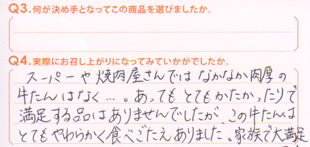 Q3.何が決め手となってこの商品を選びましたか。
Q4.実際にお召し上がりになってみていかがでしたか。
スーパーや焼肉屋さんではなかなか肉厚の
牛たんはなく…。あってもとてもかたかったりで
満足する品はありませんでしたが、この牛たんは
とてもやわらかく食べごたえありました。家族で大満足